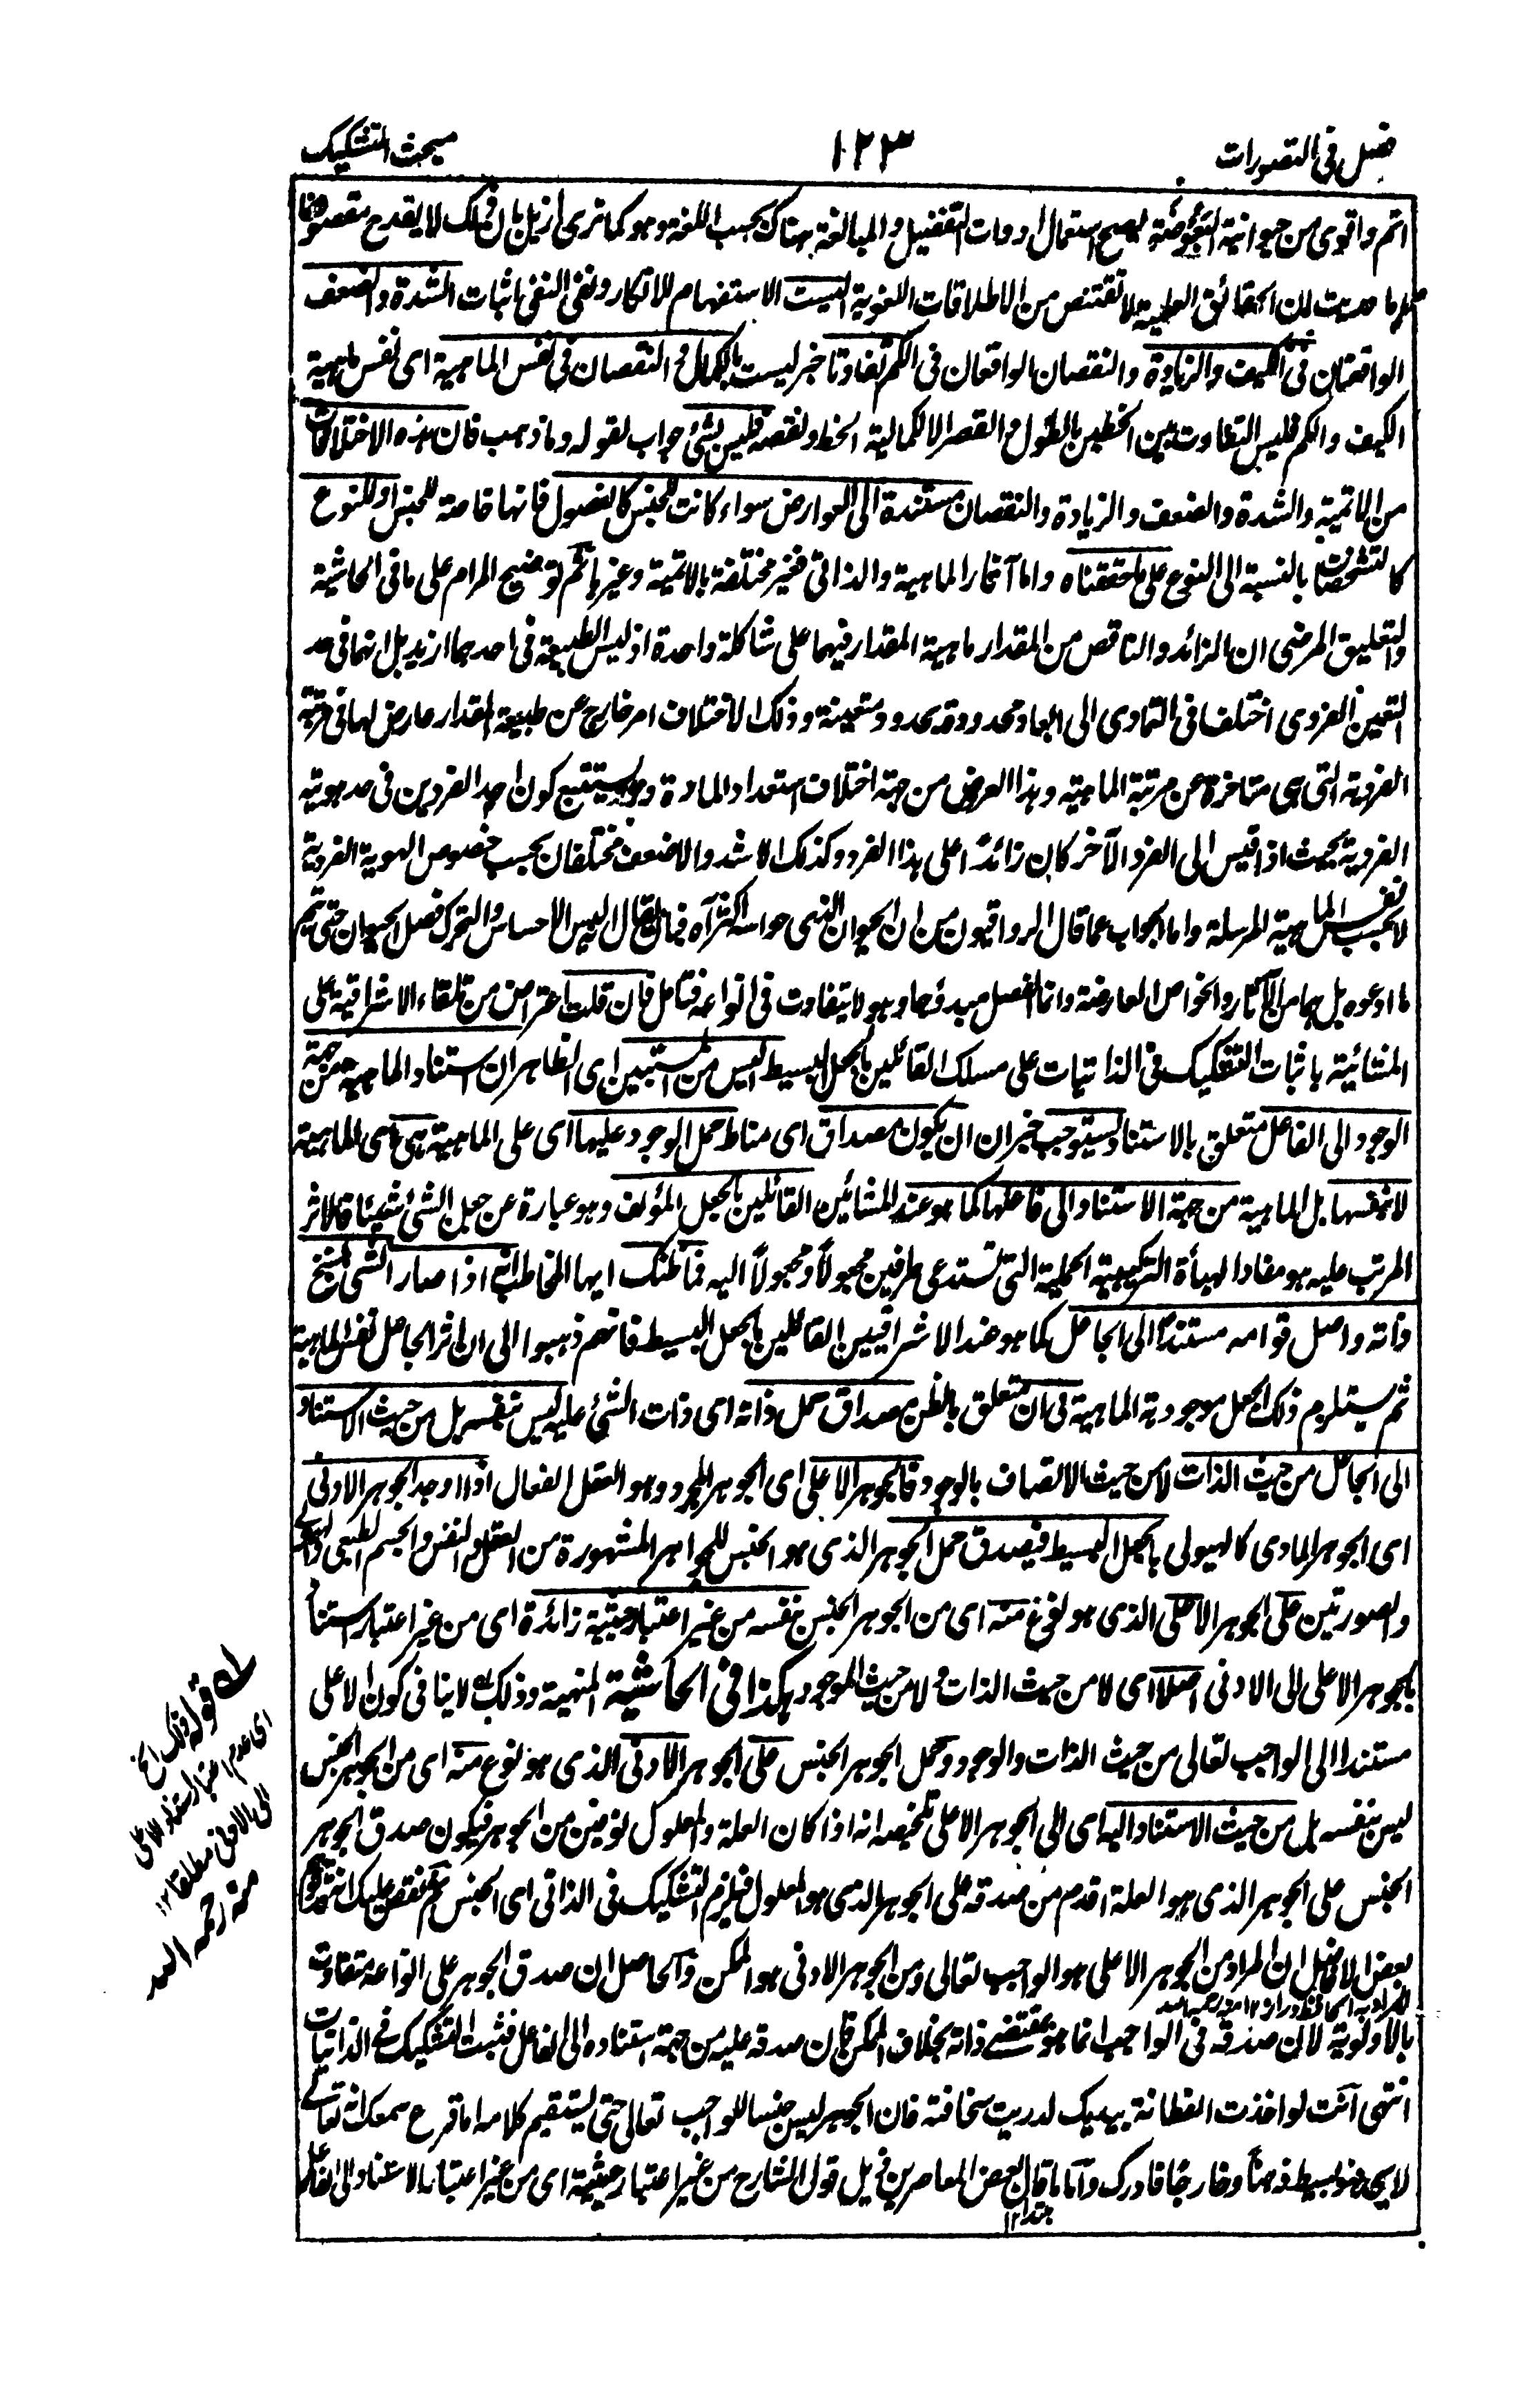 فصل فی التصورات
١٢٣
مبحث التشکیک
اتم واقوی من حیوانیة البعوضة لم یصح استعمال ادوات التفضیل والمبالغة هناک بحسب اللغة وهو کما تری ازیل بان ذلک لا یقدح مقصودنا
لما دریت ان الحقائق العلمیة لا تقتنص من الاطلاقات اللغویة الیست الاستفهام للانکار ونفی النفی اثبات الشدة والضعف
الواقعتان فی الکیف والزیادة والنقصان الواقعان فی الکم تفاوتا خبر لیست بالکمال والنقصان فی نفس الماهیة ای نفس ماهیة
الکیف والکم فلیس التفاوت بین الخطین بالطول والقصر الا لکمالیة الخط ونقصه فلیس بشئ جواب لقوله وما ذهب فان هذه الاختلافات
من الاتمیة والشدة والضعف والزیادة والنقصان مستندة الی العوارض سواء کانت للجنس کالفصول فانها خاصة للجنس او للنوع
کالتشخصات بالنسبة الی النوع علی ما حققناه واما آثار الماهیة والذاتی فغیر مختلفة بالاتمیة وغیرها ثم توضیح المرام علی ما فی الحاشیة
والتعلیق المرضی ان الزائد والناقص من المقدار ماهیة المقدار فیهما علی شاکلة واحدة اذ لیس الطبیعة فی احدهما ازید بل انهما فی حد
التعین الفردی اختلفا فی التمادی الی ابعاد محدودة بحدود متعینة وذلک الاختلاف امر خارج عن طبیعة المقدار عارض لها فی مرتبة
الفردیة التی هی متاخرة عن مرتبة الماهیة وهذا العروض من جهة اختلاف استعداد المادة وهو یستتبع کون احد الفردین فی حد هویته
الفردیة بحیث اذا قیس الی الفرد الآخر کان زائدًا علی هذا الفرد وکذلک الاشد والاضعف مختلفان بحسب خصوص الهویة الفردیة
لا بحسب نفس الماهیة المرسلة واما الجواب عما قال الرواقیون من ان الحیوان الذی حواسه اکثر آه فبان یقال لیس الاحساس والتحرک فصل الحیوان حتی یتم
ما ادعوه بل هما من الآثار والخواص العارضة وانما الفصل مبدؤهما وهو لا یتفاوت فی انواعه فتامل فان قلت اعتراض من تلقاء الاشراقیة علی
المشائیة باثبات التشکیک فی الذاتیات علی مسلک القائلین بالجعل البسیط الیس من المستبین ای الظاهر ان استناد الماهیة من جهة
الوجود الی الفاعل متعلق بالاستناد یستوجب خبر ان ان یکون مصداق ای مناط حمل الوجود علیها ای علی الماهیة هی هی الماهیة
لا بنفسها بل الماهیة من جهة الاستناد الی فاعلها کما هو عند المشائین القائلین بالجعل المؤلف وهو عبارة عن جعل الشئ شیئا فالاثر
المرتب علیه هو مفاد الهیأة الترکیبیة الحملیة التی تستدعی طرفین مجعولًا ومجعولًا الیه فما ظنک ایها المخاطب اذا صار الشئ بسنخ
ذاته واصل قوامه مستندًا الی الجاعل کما هو عند الاشراقیین القائلین بالجعل البسیط فانهم ذهبوا الی ان اثر الجاعل نفس الماهیة
ثم یستلزم ذلک الجعل موجودیة الماهیة فی ان متعلق بالظن مصداق حمل ذاته ای ذات الشئ علیه لیس بنفسه بل من حیث الاستناد
الی الجاعل من حیث الذات لا من حیث الاتصاف بالوجود فالجوهر الاعلی ای الجوهر المجرد وهو العقل الفعال اذا اوجد الجوهر الادنی
ای الجوهر المادی کالهیولی بالجعل البسیط فیصدق حمل الجوهر الذی هو الجنس للجواهر المشهورة من العقل والنفس والجسم الطبیعی والهیولی
والصورتین علی الجوهر الاعلی الذی هو نوع منه ای من الجوهر الجنس بنفسه من غیر اعتبار حیثیة زائدة ای من غیر اعتبار استناد
الجوهر الاعلی الی الادنی اصلا ای لا من حیث الذات ولا من حیث الوجود هکذا فی الحاشیة المنهیة وذلک لا ینافی کون الاعلی
مستندا الی الواجب تعالی من حیث الذات والوجود وحمل الجوهر الجنس علی الجوهر الادنی الذی هو نوع منه ای من الجوهر الجنس
لیس بنفسه بل من حیث الاستناد الیه ای الی الجوهر الاعلی تلخیصه انه اذا کان العلة والمعلول نوعین من الجوهر فیکون صدق الجوهر
الجنس علی الجوهر الذی هو العلة اقدم من صدقه علی الجوهر الذی هو المعلول فیلزم التشکیک فی الذاتی ای الجنس ثم نقص علیک
بعض الافاضل ان المراد من الجوهر الاعلی هو الواجب تعالی ومن الجوهر الادنی هو الممکن والحاصل ان صدق الجوهر علی انواعه متفاوت
بالاولویة لان صدقه فی الواجب انما هو بمقتضی ذاته بخلاف الممکن فان صدقه علیه من جهة استناده الی الفاعل فثبت التشکیک فی الذاتیات
انتهی انت لو اخذت الفطانة بیدیک لدریت سخافته فان الجوهر لیس جنسا للواجب تعالی حتی یستقیم کلامه اما قرع سمعک انه تعالی
بسیط ذهنًا وخارجًا فادرک واما ما قال بعض المعاصرین فی ذیل قول الشارح من غیر اعتبار حیثیة ای من غیر اعتبار الاستناد الی الفاعل
قوله ذلک الخ
ای عدم اعتبار استناد الاعلی
الی الادنی مطلقا ١٢
منه رحمه الله